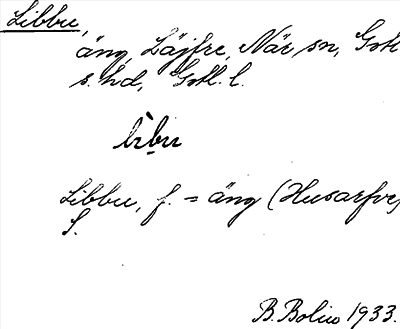 Libbu,
äng, Läjfre, När sn, Gotl
s. hd, Gotl. l.
lìbu
Libbu, f. = äng (Husarfve)
S.
B. Bolin 1933.